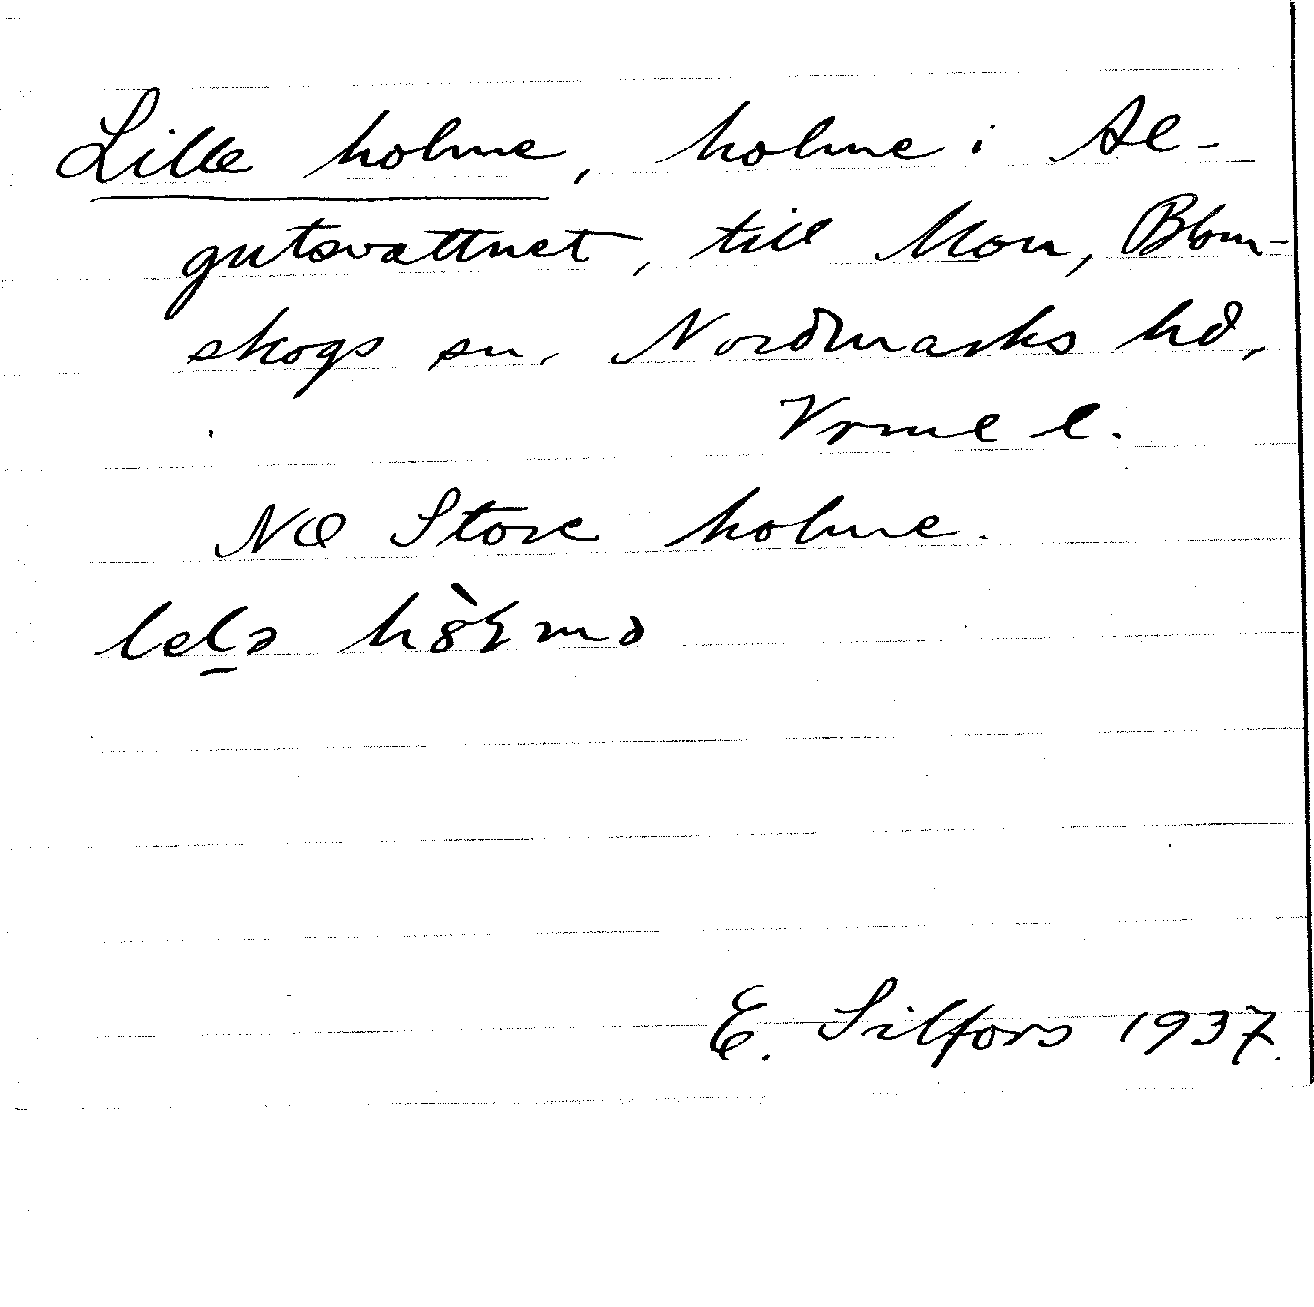 Lille holme, holme i Al-
gutsvattnet, till Mon, Blom-
skogs sn. Nordmarks hd,
Vrml l.
Nö Store holme.
E. Silfors 1937.